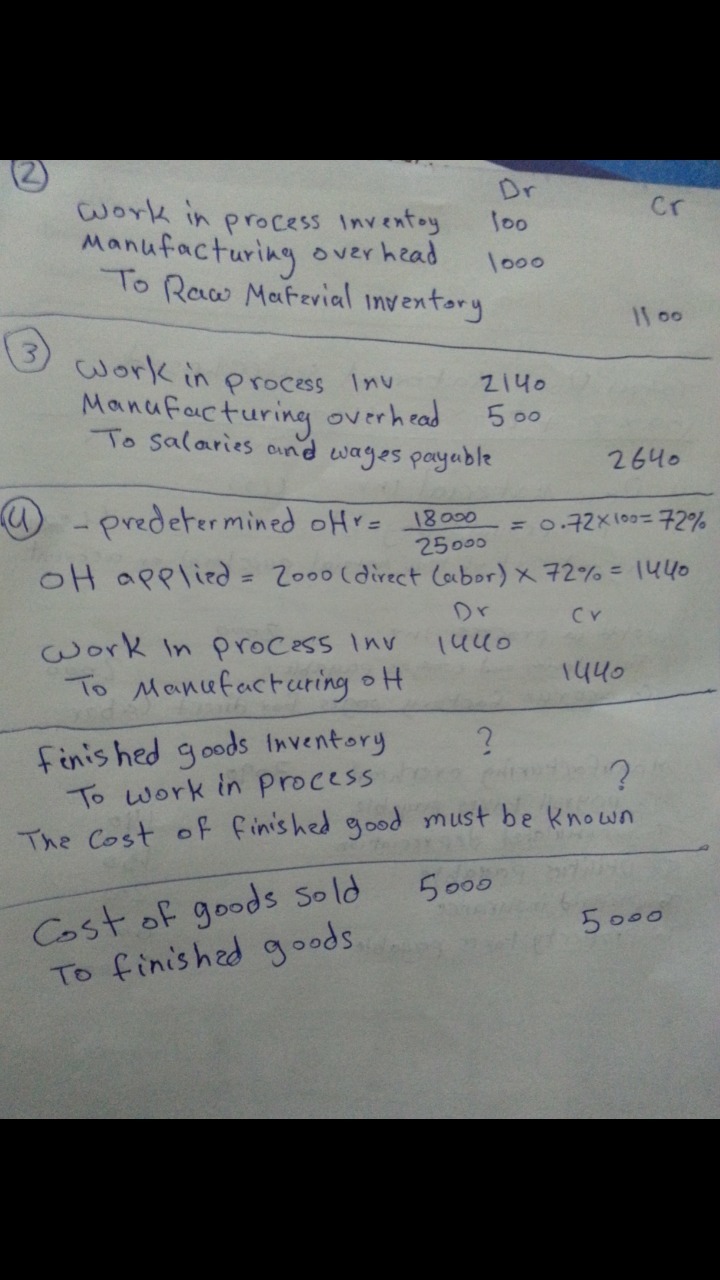 2
Dr Cr
Work in process Inventoy 100
Manufacturing overhead 1000
To Raw Material inventory 1100
3
Work in process Inv 2140
Manufacturing overhead 500
To salaries and wages payable 2640
4 - predetermined OHr = 18000/25000 = 0.72×100=72%
OH applied = 2000 (direct labor) × 72% = 1440
Dr Cr
Work In process Inv 1440
To Manufacturing OH 1440
Finished goods Inventory ?
To work in process ?
The cost of finished good must be known
Cost of goods sold 5000
To finished goods 5000